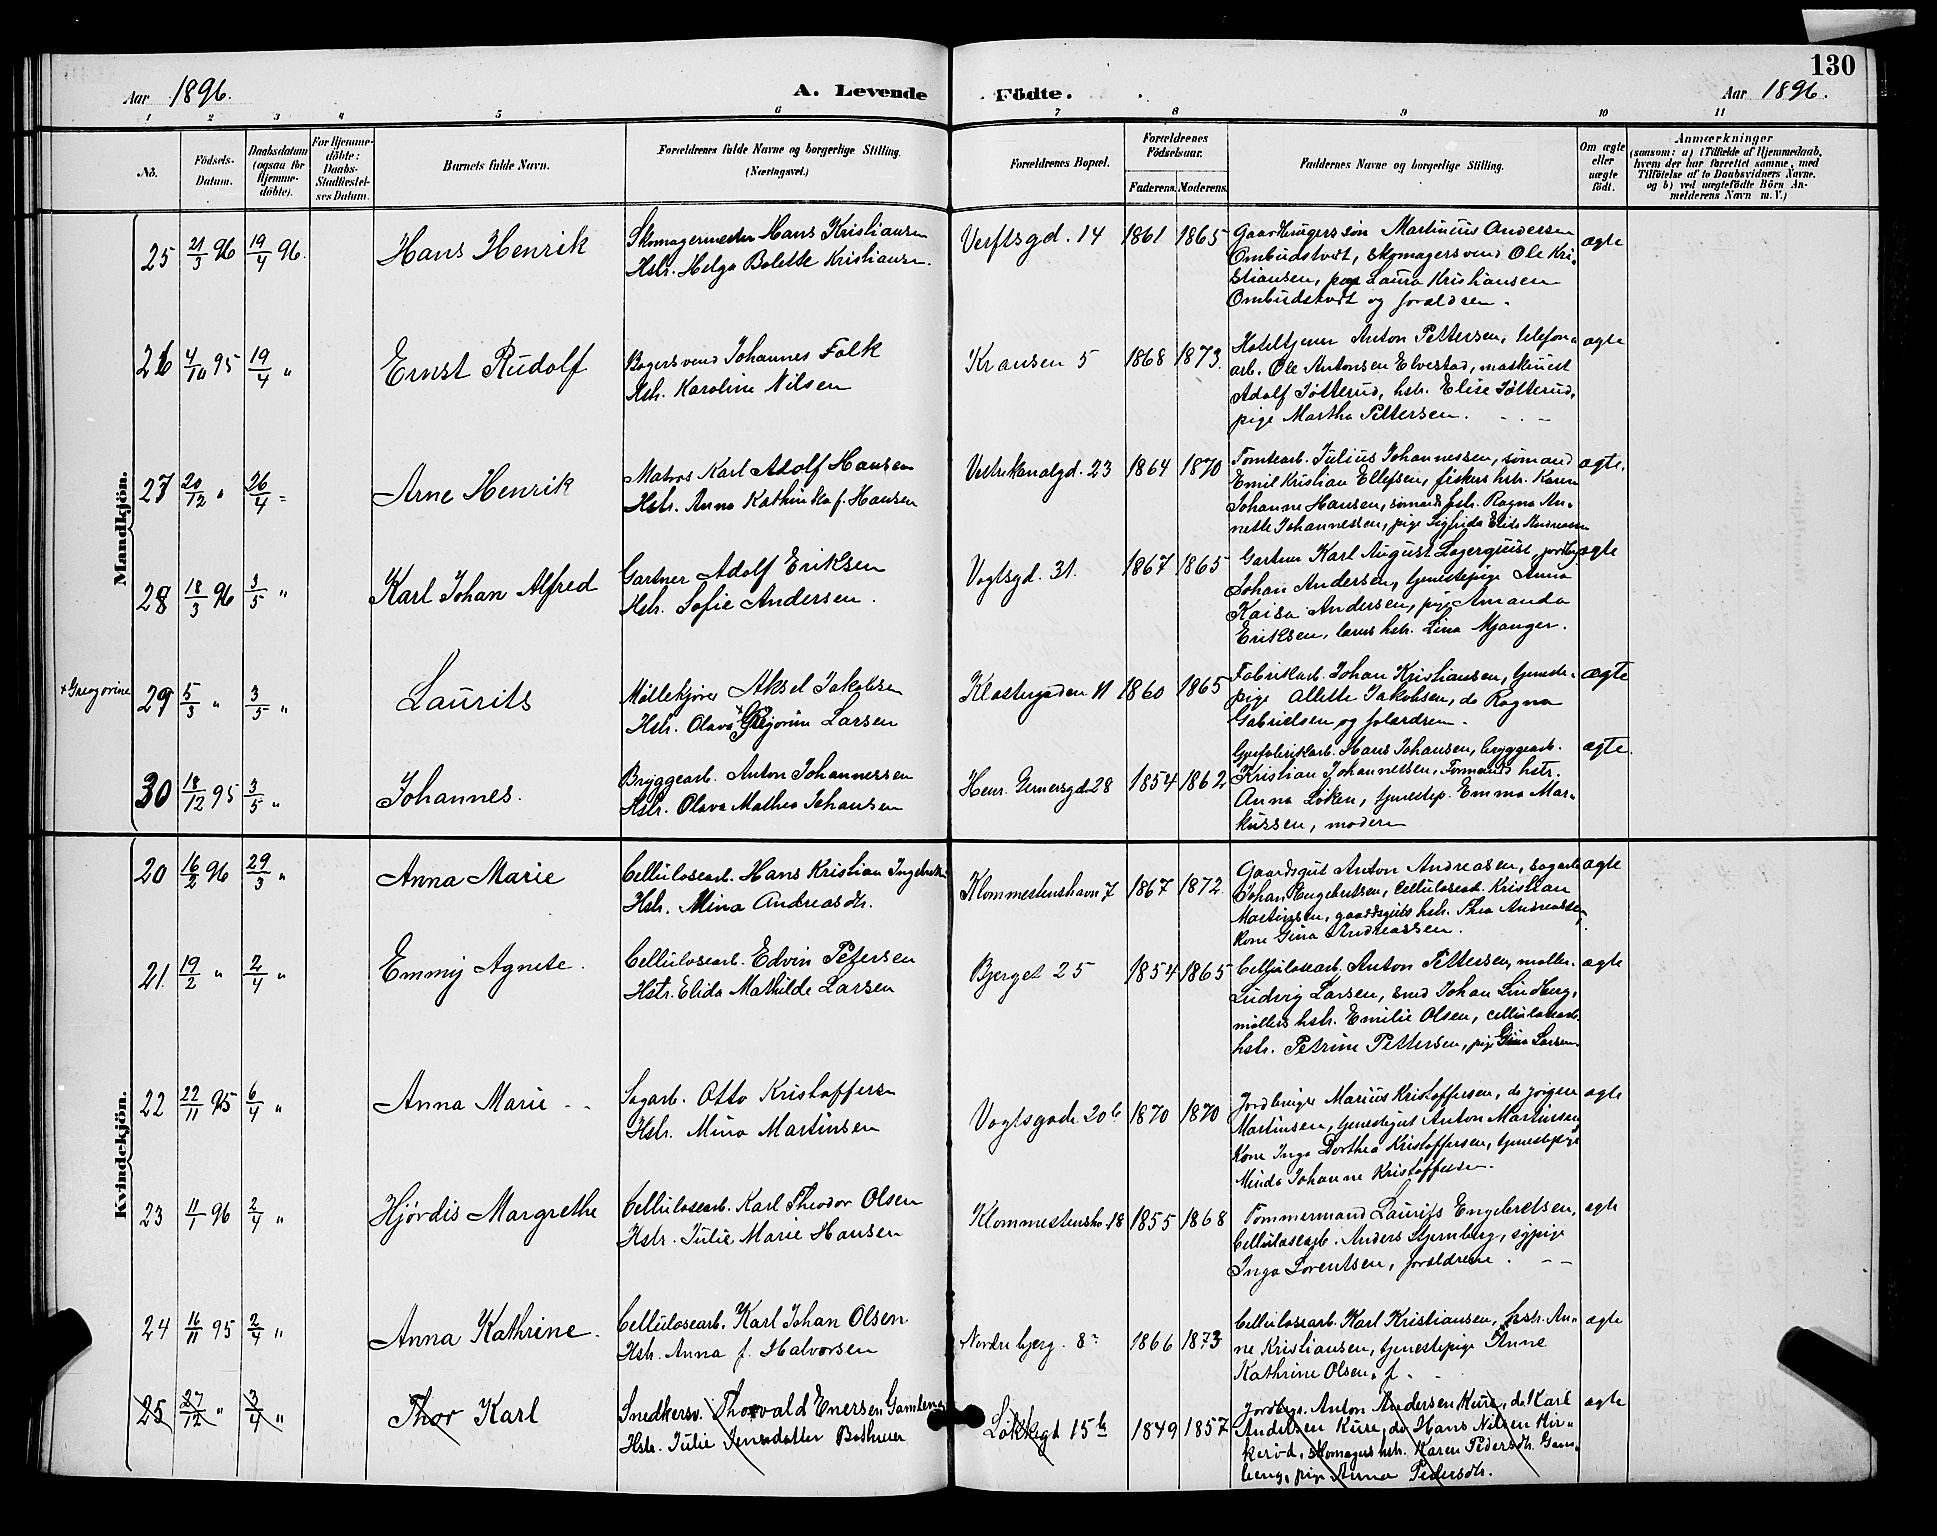 130
Aar 1896. A. Levende Födte. Aar 1896.
1 2 3 4 5 6 7 8 9 10 11
No.
Födsels-Datum.
Daabsdatum (ogsaa for Hjemme-döbte).
For Hjemme-döbte: Daabs-Stadfæstel-ses Datum.
Barnets fulde Navn.
Forældrenes fulde Navne og borgerlige Stilling. (Næringsvei.)
Forældrenes Bopæl.
Forældrenes Födselsaar.
Faderens. Moderens.
Faddernes Navne og borgerlige Stilling.
Om ægte eller uægte födt.
Anmærkninger
(saasom: a) i Tilfælde af Hjemmedaab, hvem der har forrettet samme, med Tilföielse af to Daabsvidners Navne. og b) ved uægtefödte Börn An-melderens Navn m. V.)
Mandkjön.
25 21/3 96 19/4 96. Hans Henrik
Skomagermester Hans Kristiansen
Hstr. Helga Bolette Kristiansen.
Verftsgd. 14 1861 1865
Gaardbrugerssön Martinius Andersen
Ombudstvdt, skomagersvend Ole Kri-
stiansen, pige Laura Kristiansen
Ombudstvdt og forældren.
ægte
26 4/10 95 19/4 " Ernst Rudolf
Bagersvend Johannes Falk
Hstr. Karoline Nilsen
Kransen 5 1868 1873.
Hoteltjener Anton Pettersen, telefon-
arb. Ole Antonsen Elvestad, maskinist
Adolf Jötterud, hstr. Elise Jötterud,
pige Martha Pettersen.
ægte
27 20/12 " 26/4 " Arne Henrik
Matros Karl Adolf Hansen
Hstr. Anna Kathinka f. Hansen
Vestrekanalgd. 23 1864 1870
Tomtearb. Julius Johannessen, sömand
Emil Kristian Ellefsen, fiskers hstr. Karen
Johanne Hansen, sömands hstr. Ragna An-
nette Johannessen, pige Sighida Elise Andreassen
ægte.
28 18/3 96 3/5 " Karl Johan Alfred
Gartner Adolf Eriksen
Hstr. Sofie Andersen.
Vogtsgd. 31. 1867 1865
Gartner Karl August Lagerquist, jordbr.
Johan Andersen, tjenestepige Anna
Kaisa Andersen, pige Amanda
Eriksen, lærers hstr. Lina Mjanger.
ægte
+ Gregorine
29 5/3 " 3/5 " Laurits
Möllekjörer Aksel Jakobsen
Hstr. Olava + Gregorine Larsen
Klostergaden 11 1860 1865
Fabrikarb. Johan Kristiansen, tjeneste-
pige Allette Jakobsen, do Ragna
Gabrielsen og forældren.
ægte
30 18/12 95 3/5 " Johannes.
Bryggearb. Anton Johannessen
Hstr. Olava Mathea Johansen
Henr. Gernersgd 28 1854 1862
Gasfabrikarb. Hans Johansen, bryggearb.
Kristian Johannessen, Formands hstr.
Anna Löken, tjenestep. Emma Mar-
kussen, modern
ægte.
Kvindekjön.
20 16/2 96 29/3 " Anna Marie
Cellulosearb. Hans Kristian Ingebretsen
Hstr. Mina Andreasdtr.
Klommestenshavn 7 1867 1872.
Gaardsgut Anton Andreasen, sagarb.
Johan Engebretsen, cellulosearb. Kristian
Martinsen, gaardsguts hstr. Thea Andreassen,
kone Gina Andreassen.
ægte
21. 19/2 " 2/4 " Emmy Agnete.
Cellulosearb. Edvin Petersen
Hstr. Elida Mathilde Larsen
Bjerget 25 1854 1865
Cellulosearb. Anton Pettersen, möller.
Ludvig Larsen, smed Johan Lindberg,
möllers hstr. Emilie Olsen, cellulosearb.
hstr. Petrine Pettersen, pige Gina Larsen
ægte
22 22/11 95 6/4 " Anna Marie
Sagarb. Otto Kristoffersen
Hstr. Mina Martinsen
Vogtsgade 20b 1870 1870
Jordbruger Marius Kristoffersen, do Jörgen
Martinsen, tjenestegut Anton Martinsen
Kone Inga Dorthea Kristoffersen, tjenestepige
Minda Johanne Kristoffersen.
ægte
23 11/1 96 2/4 " Hjördis Margrethe
Cellulosearb. Karl Theodor Olsen
Hstr. Julie Marie Hansen
Klommestensha. 18 1855 1868
Tömmermand Laurits Engebretsen,
Cellulosearb. Anders Stjernberg, sypige
Inga Lorentsen, forældrene.
ægte
24 16/11 95 2/4 " Anna Kathrine.
Cellulosearb. Karl Johan Olsen
Hstr. Anna f. Halvorsen
Nordre bjerg. 8 1866 1873
Cellulosearb. Karl Kristiansen, hstr. An-
ne Kristiansen, tjenestepige Anne
Kathrine Olsen. f.
ægte
25 27/12 " 3/4 " Thor Karl
Snedkersv. Thorvald Enersen Gamleng
Hstr. Julie Jensdatter Bothner
Lökkegt 15b 1849 1857
Jordbrgr. Anton Andersen Kure, do Karl
Andersen Kure, do Hans Nilsen Kir-
keröd, skomagers hstr. Karen Pedersdtr. Gam-
beng, pige Anna Pedersdtr.
ægte